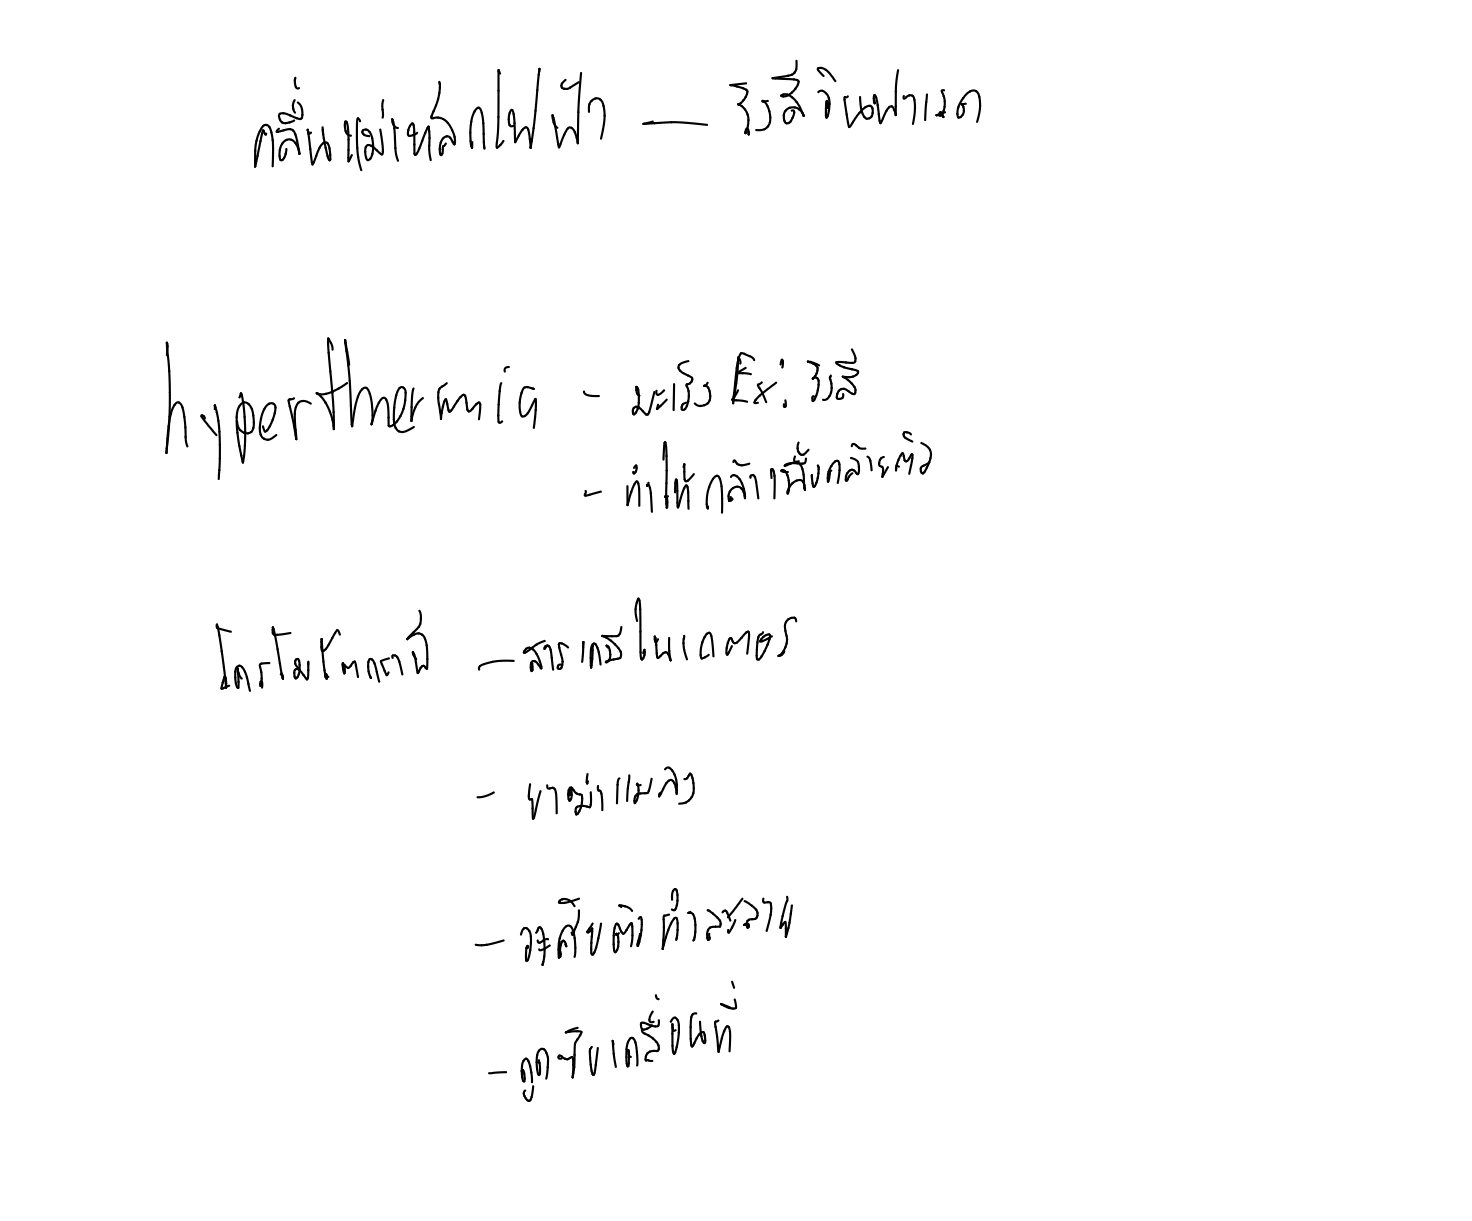 คลื่นแม่เหล็กไฟฟ้า — รังสีอินฟาเรด
hyperthermia - มะเร็ง Ex: รังสี
- ทำให้กล้ามเนื้อคลายตัว
โครโมโตกราฟี — สารเคมีในเกษตร
- ยาฆ่าแมลง
- อาศัยตัวทำละลาย
- ดูดซับเคลื่อนที่